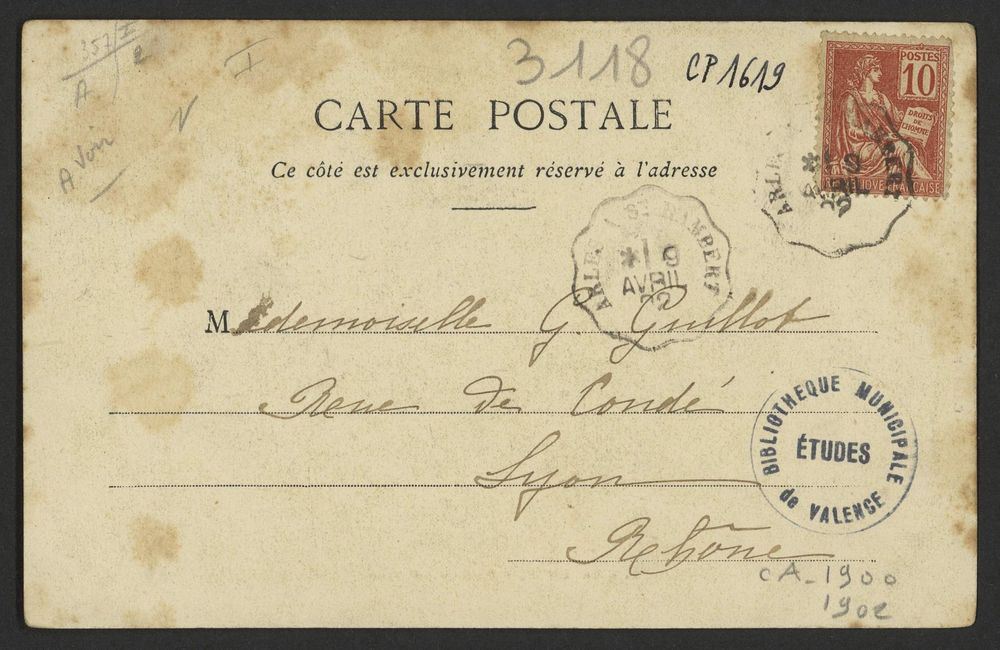 357/I
2
A
I
N
A Voir
3118
CP1619
POSTES
10
DROITS
DE
L'HOMME
CARTE POSTALE
Ce côté est exclusivement réservé à l'adresse
ARLE
9
ARLES A ST RAMBERT
* 19
AVRIL
02
Mademoiselle G. Guillot
Rue de Condé
Lyon
Rhône
BIBLIOTHEQUE MUNICIPALE
ÉTUDES
de VALENCE
CA-1900
1902